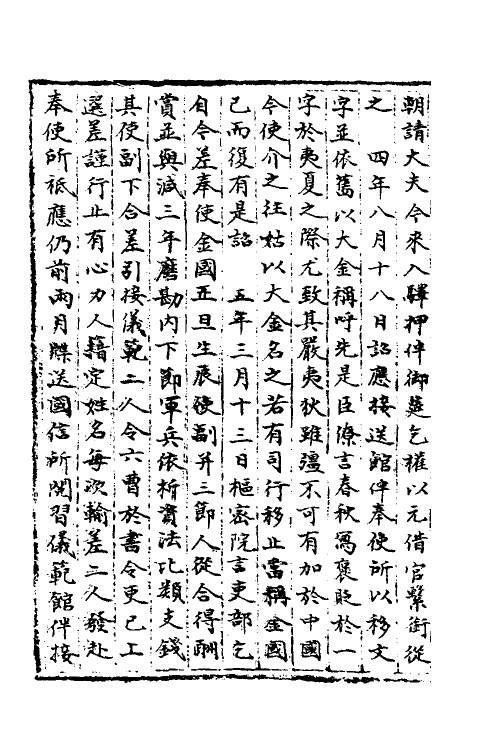 朝請大夫今來入驛押伴御筵乞權以元借官繫銜從
之　四年八月十八日詔應接送館伴奉使所以移文
字並依舊以大金稱呼先是臣僚言春秋寓褒貶於一
字於夷夏之際尤致其嚴夷狄雖彊不可有加於中國
今使介之往姑以大金名之若有司行移止當稱金國
已而復有是詔　五年三月十三日樞密院言吏部乞
自今差奉使金國正旦生辰使副并三節人從合得酬
賞並與減三年磨勘內下節軍兵依析資法比類支錢
其使副下合差引接儀範二人令六曹於書令史已上
選差謹行止有心力人籍定姓名每次輪差二人發赴
奉使所祗應仍前兩月牒送國信所閱習儀範館伴接